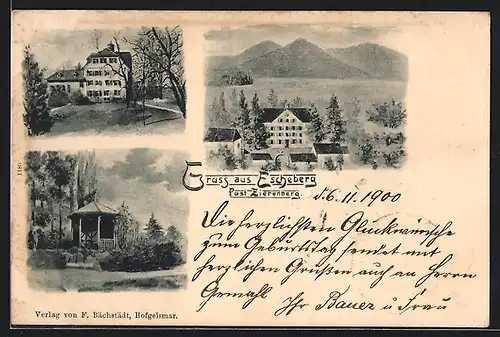 Gruss aus Escheberg
Post Zierenberg.
d. 6. 11. 1900
Die herzlichsten Glückwünsche
zum Geburtstag sendet mit
herzlichen Grüßen auch an Herrn
Gemahl Ihr Bauer u Frau
1180
Verlag von F. Bächstädt, Hofgeismar.